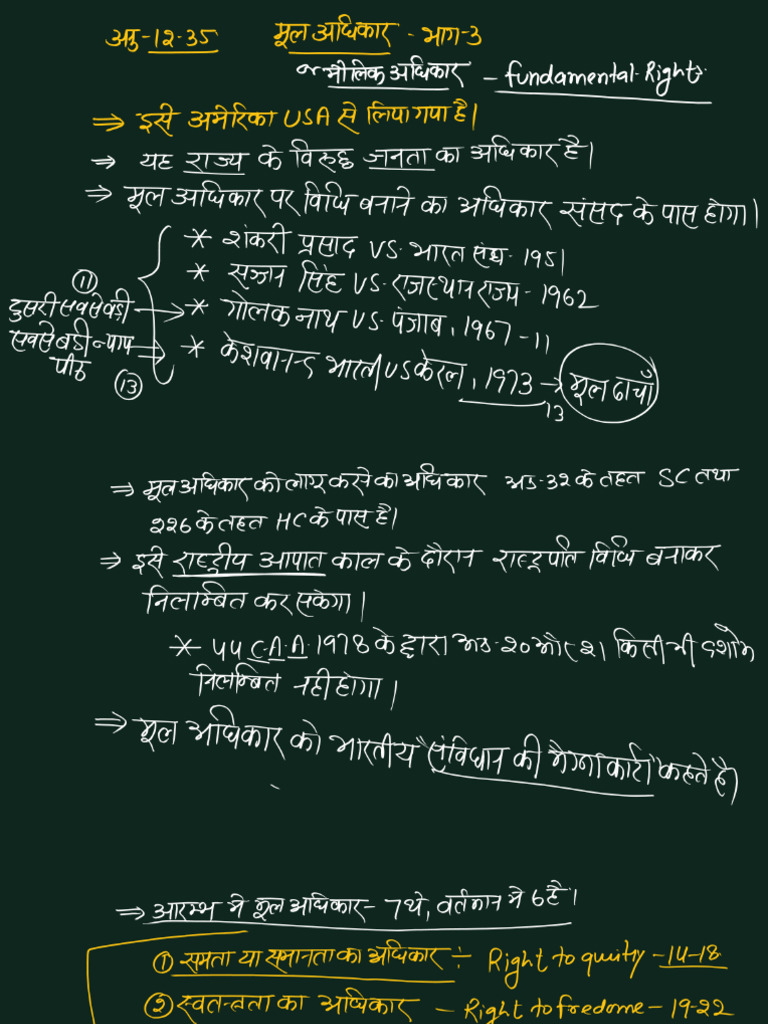 अनु-12-35 मूल अधिकार - भाग-3
or मौलिक अधिकार - fundamental Right
⇒ इसे अमेरिका USA से लिया गया है।
⇒ यह राज्य के विरुद्ध जनता का अधिकार है।
⇒ मूल अधिकार पर विधि बनाने का अधिकार संसद के पास होगा।
* शंकरी प्रसाद VS. भारत संघ - 1951
* सज्जन सिंह VS. राजस्थान राज्य - 1962
⑪ दुसरी सबसे बड़ी → * गोलक नाथ VS. पंजाब, 1967 - 11
सबसे बड़ी न्याय पीठ ⑬ → * केशवानन्द भारती VS केरल, 1973 → 13 मूल ढाचाँ
⇒ मूल अधिकार को लागू करने का अधिकार अनु-32 के तहत SC तथा
226 के तहत HC के पास है।
⇒ इसे राष्ट्रीय आपात काल के दौरान राष्ट्रपति विधि बनाकर
निलाम्बित कर सकेगा।
* 44 C.A.A. 1978 के द्वारा अनु-20 और 21 किसी भी दशा में
निलम्बित नही होगा।
⇒ मूल अधिकार को भारतीय "संविधान की मैग्नाकार्टा" कहते है।
⇒ आरम्भ मे मूल अधिकार - 7 थे, वर्तमान मे 6 है।
① समता या समानता का अधिकार ÷ Right to quity - 14-18
② स्वतन्त्रता का अधिकार - Right to fredome - 19-22